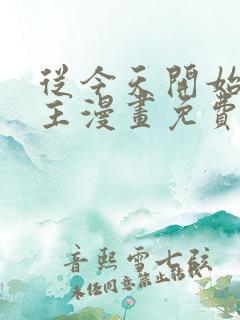 從今天開始
王漫畫免費
音熙雪七弦
未任同意禁止轉載